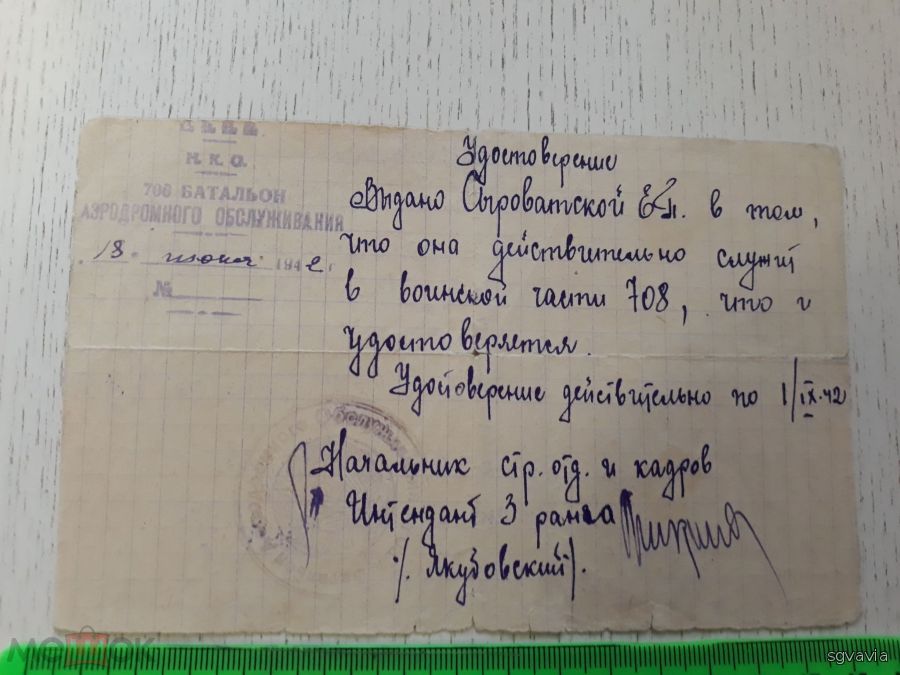 С.С.С.Р.
Н.К.О.
708 БАТАЛЬОН
АЭРОДРОМНОГО ОБСЛУЖИВАНИЯ
18. июня 1942 г.
№
Удостоверение
Выдано Сыроватской Е.Л. в том,
что она действительно служит
в воинской части 708, что и
удостоверяется.
Удостоверение действительно по 1/IX-42
Начальник стр. отд. и кадров
Интендант 3 ранга
/. Якубовский/.
МЕШОК
sgvavia